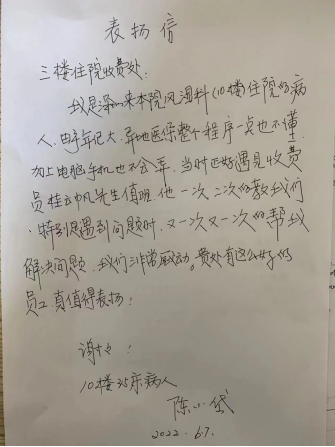 表扬信
三楼住院收费处:
我是来本院风湿科(10楼住院的病
人,由于年记大,异地医保整个程序一点也不懂,
加上电脑手机也不会弄,当时正好遇见收费
员桂云帆先生值班,他一次二次的教我们
,特别是遇到问题时,又一次又一次的帮我
解决问题,我们非常感动。贵处有这么好的
员工,真值得表扬!
谢谢!
10楼35床病人
陈小岱
2022.6.7.